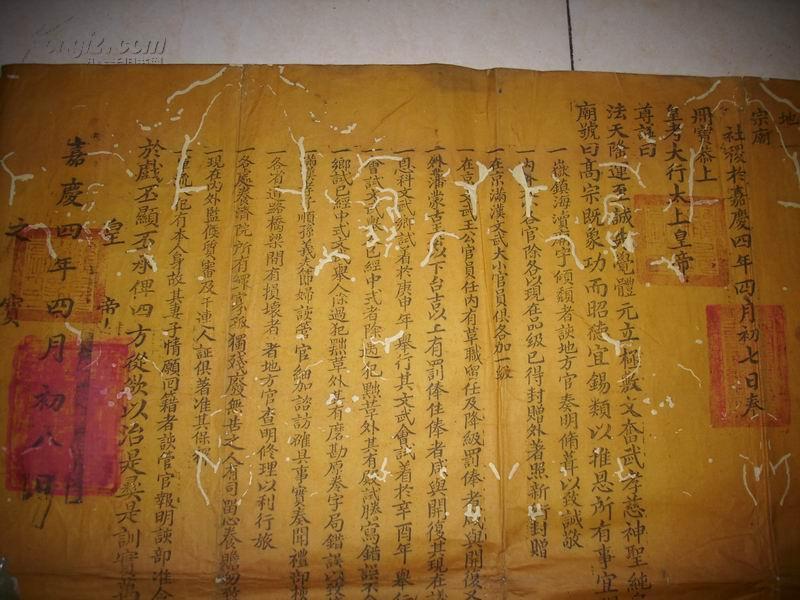 地
宗廟
社稷於嘉慶四年四月初七日奉
冊寶恭上
皇考大行太上皇帝
尊謚曰
法天隆運至誠先覺體元立極敷文奮武孝慈神聖純皇
廟號曰高宗既象功而昭德宜錫類以推恩所有事宜
一嶽鎮海瀆廟宇傾頹者該地方官奏明修葺以致誠敬
一內外大小各官除各以現在品級已得封贈外著照新銜封贈
一在京滿漢文武大小官員俱各加一級
一在京文武王公官員任內有革職留任及降級罰俸者咸與開復
一外藩蒙古王公以下台吉以上有罰俸住俸者咸與開復其現在議
一恩科文武鄉試著於庚申年舉行其文武會試着於辛酉年舉行
一會試文武舉人已經中式者除過犯黜革外其有殿試謄寫錯誤不
一鄉試已經中式文武舉人除過犯黜革外其有磨勘原卷字句錯誤
一滿漢孝子順孫義夫節婦該管官細加諮訪確具事實奏聞禮部
一各省道路橋梁間有損壞者 者地方官查明修理以利行旅
一各處養濟院所有鰥寡孤獨殘廢無告之人有司留心養贍
一現在內外監候質審及干連人証俱著准其保
一軍流人犯有本人身故其妻子情願回籍者該管官報明該部准令
於戲丕顯丕承俾四方從欲以治是彝是訓實
皇帝
之寶
嘉慶四年四月初八日
kongfz.com